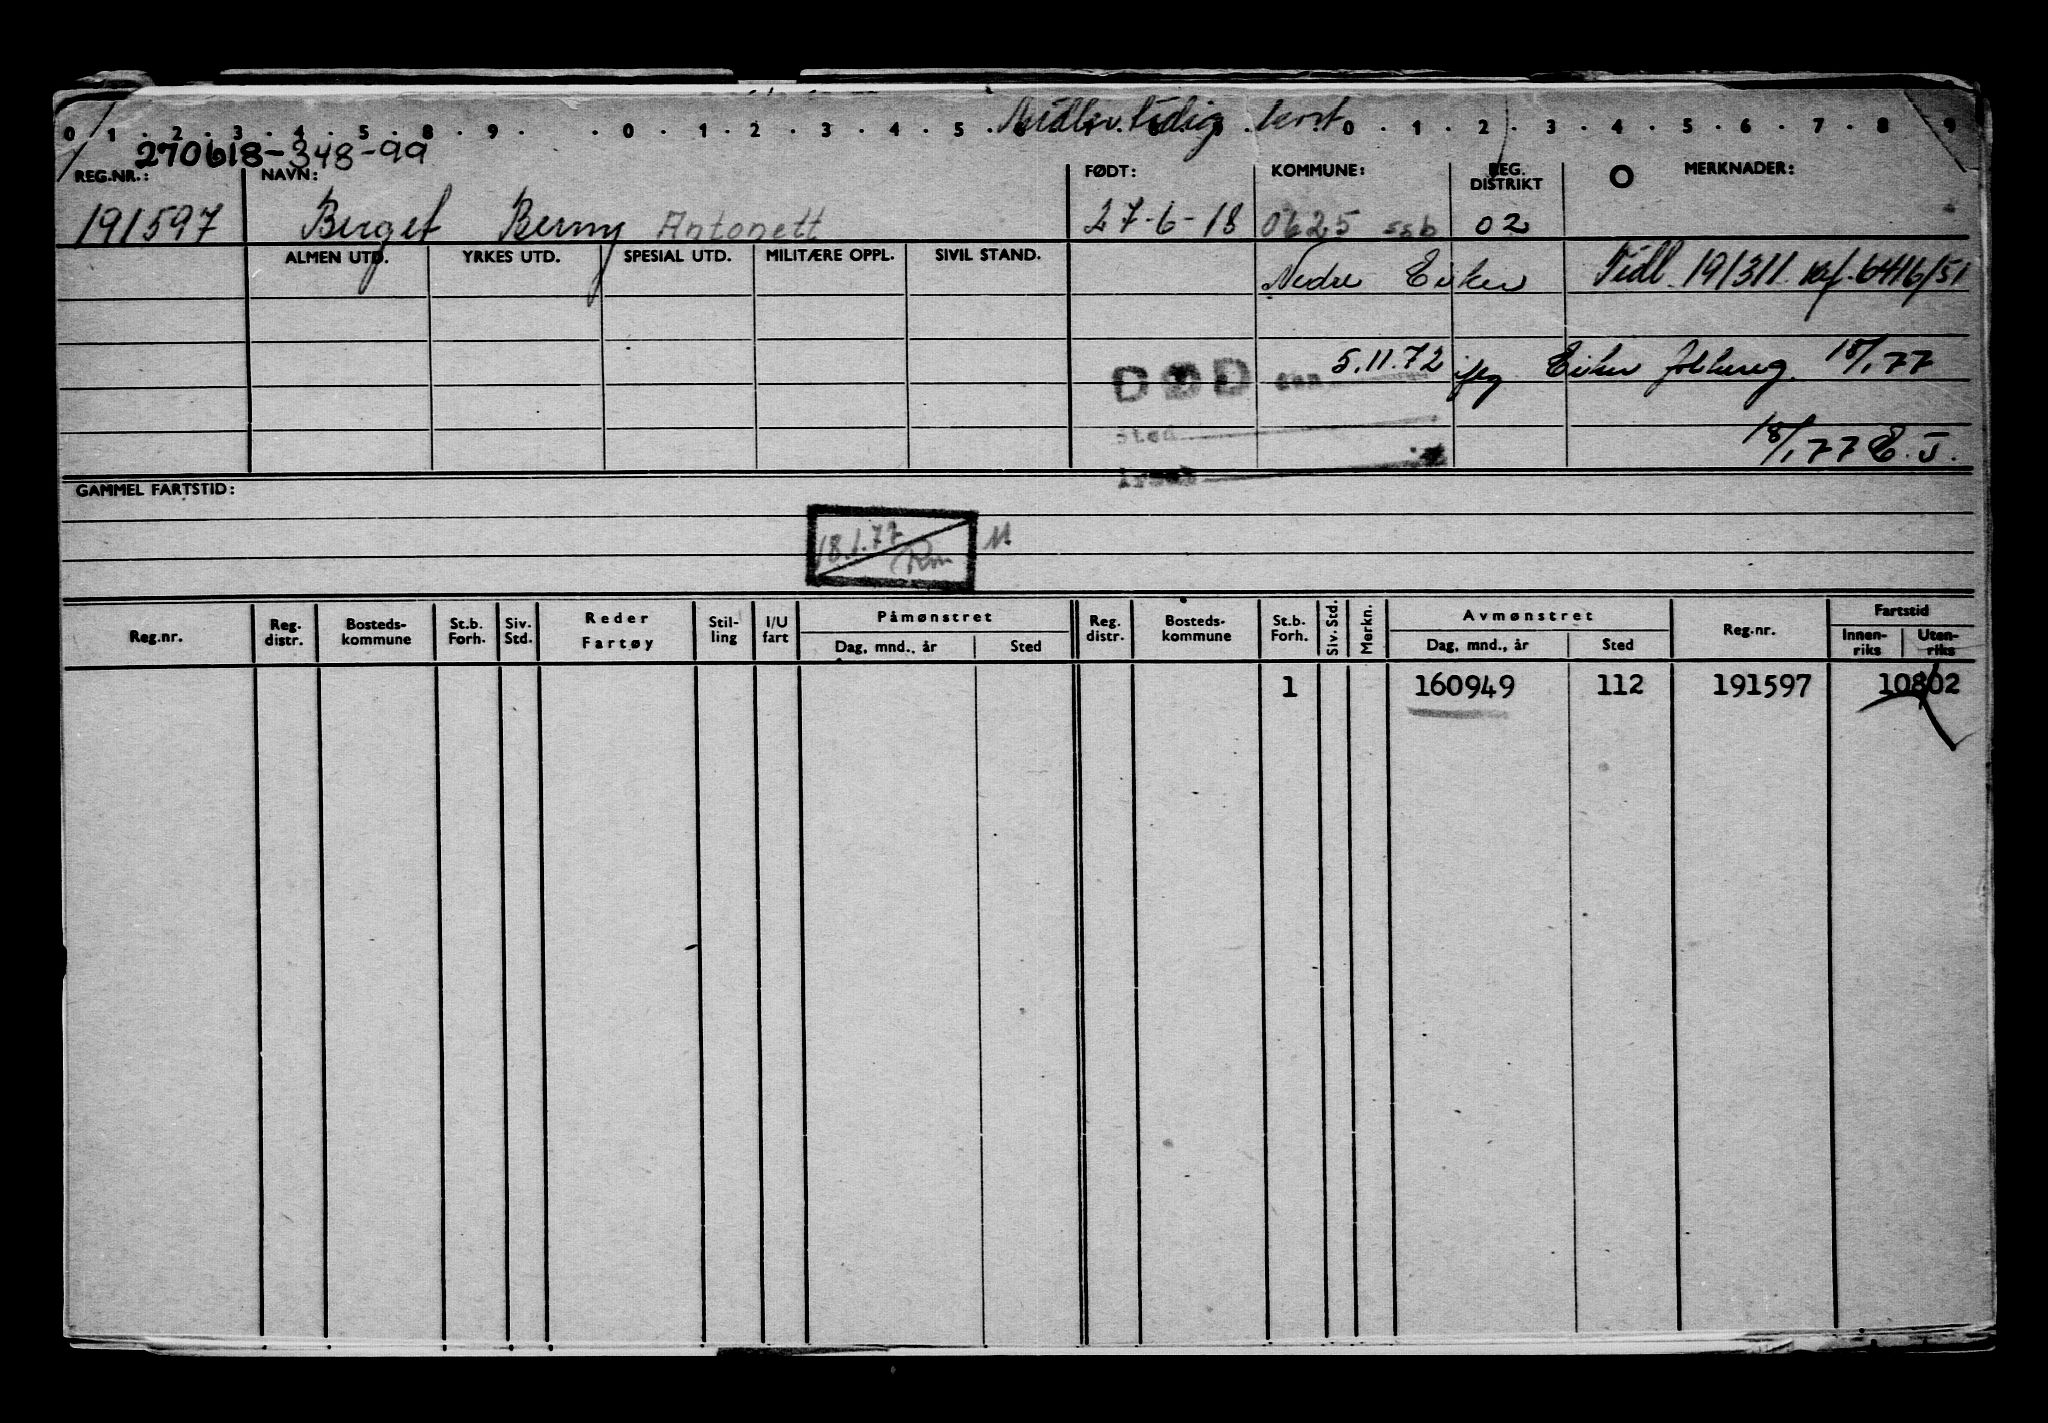 Midlertidig kort
0 1 . 2 . 3 . 4 . 5 . 8 . 9 . . . 0 . 1 . 2 . 3 . 4 . 5 . 6 . . . . 0 . 1 . 2 . 3 . 4 . 5 . 6 . 7 . 8 . 9
270618-348-99
REG.NR.: NAVN: FØDT: KOMMUNE: REG. DISTRIKT O MERKNADER:
191597 Berget Berny Antonett 27-6-18 0625 ssb 02
ALMEN UTD. YRKES UTD. SPESIAL UTD. MILITÆRE OPPL. SIVIL STAND. Nedre Eiker Tidl 191311 Kf. 6416/51
DØD den 5.11.72 iflg Eiker folkereg. 18/1 77
Sted
18/1 77 E. J.
Årsak
GAMMEL FARTSTID:
18.1.77 M
Rm
Reg.nr. Reg. distr. Bosteds-kommune St.b. Forh. Siv. Std. Reder Fartøy Stil-ling I/U fart Påmønstret Dag, mnd., år Sted Reg. distr. Bosteds-kommune St.b. Forh. Siv. Std. Merkn. Avmønstret Dag, mnd., år Sted Reg.nr. Fartstid Innen-riks Uten-riks
1 160949 112 191597 10802